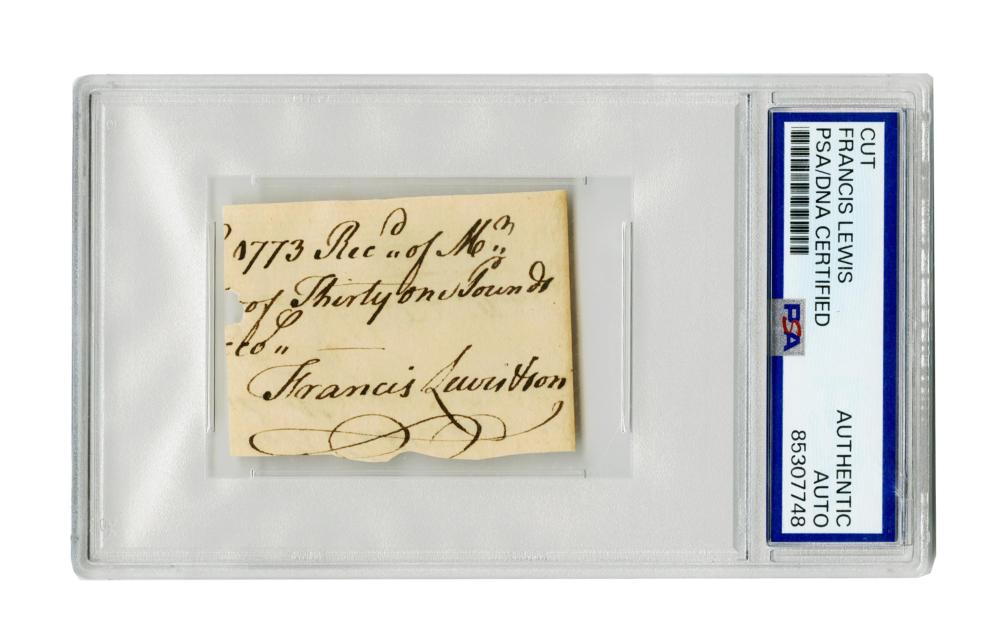 1773 Rec'd of Mr
of Thirty one Pounds
Francis Lewis & Son
CUT
FRANCIS LEWIS
PSA/DNA CERTIFIED
PSA
AUTHENTIC
AUTO
85307748